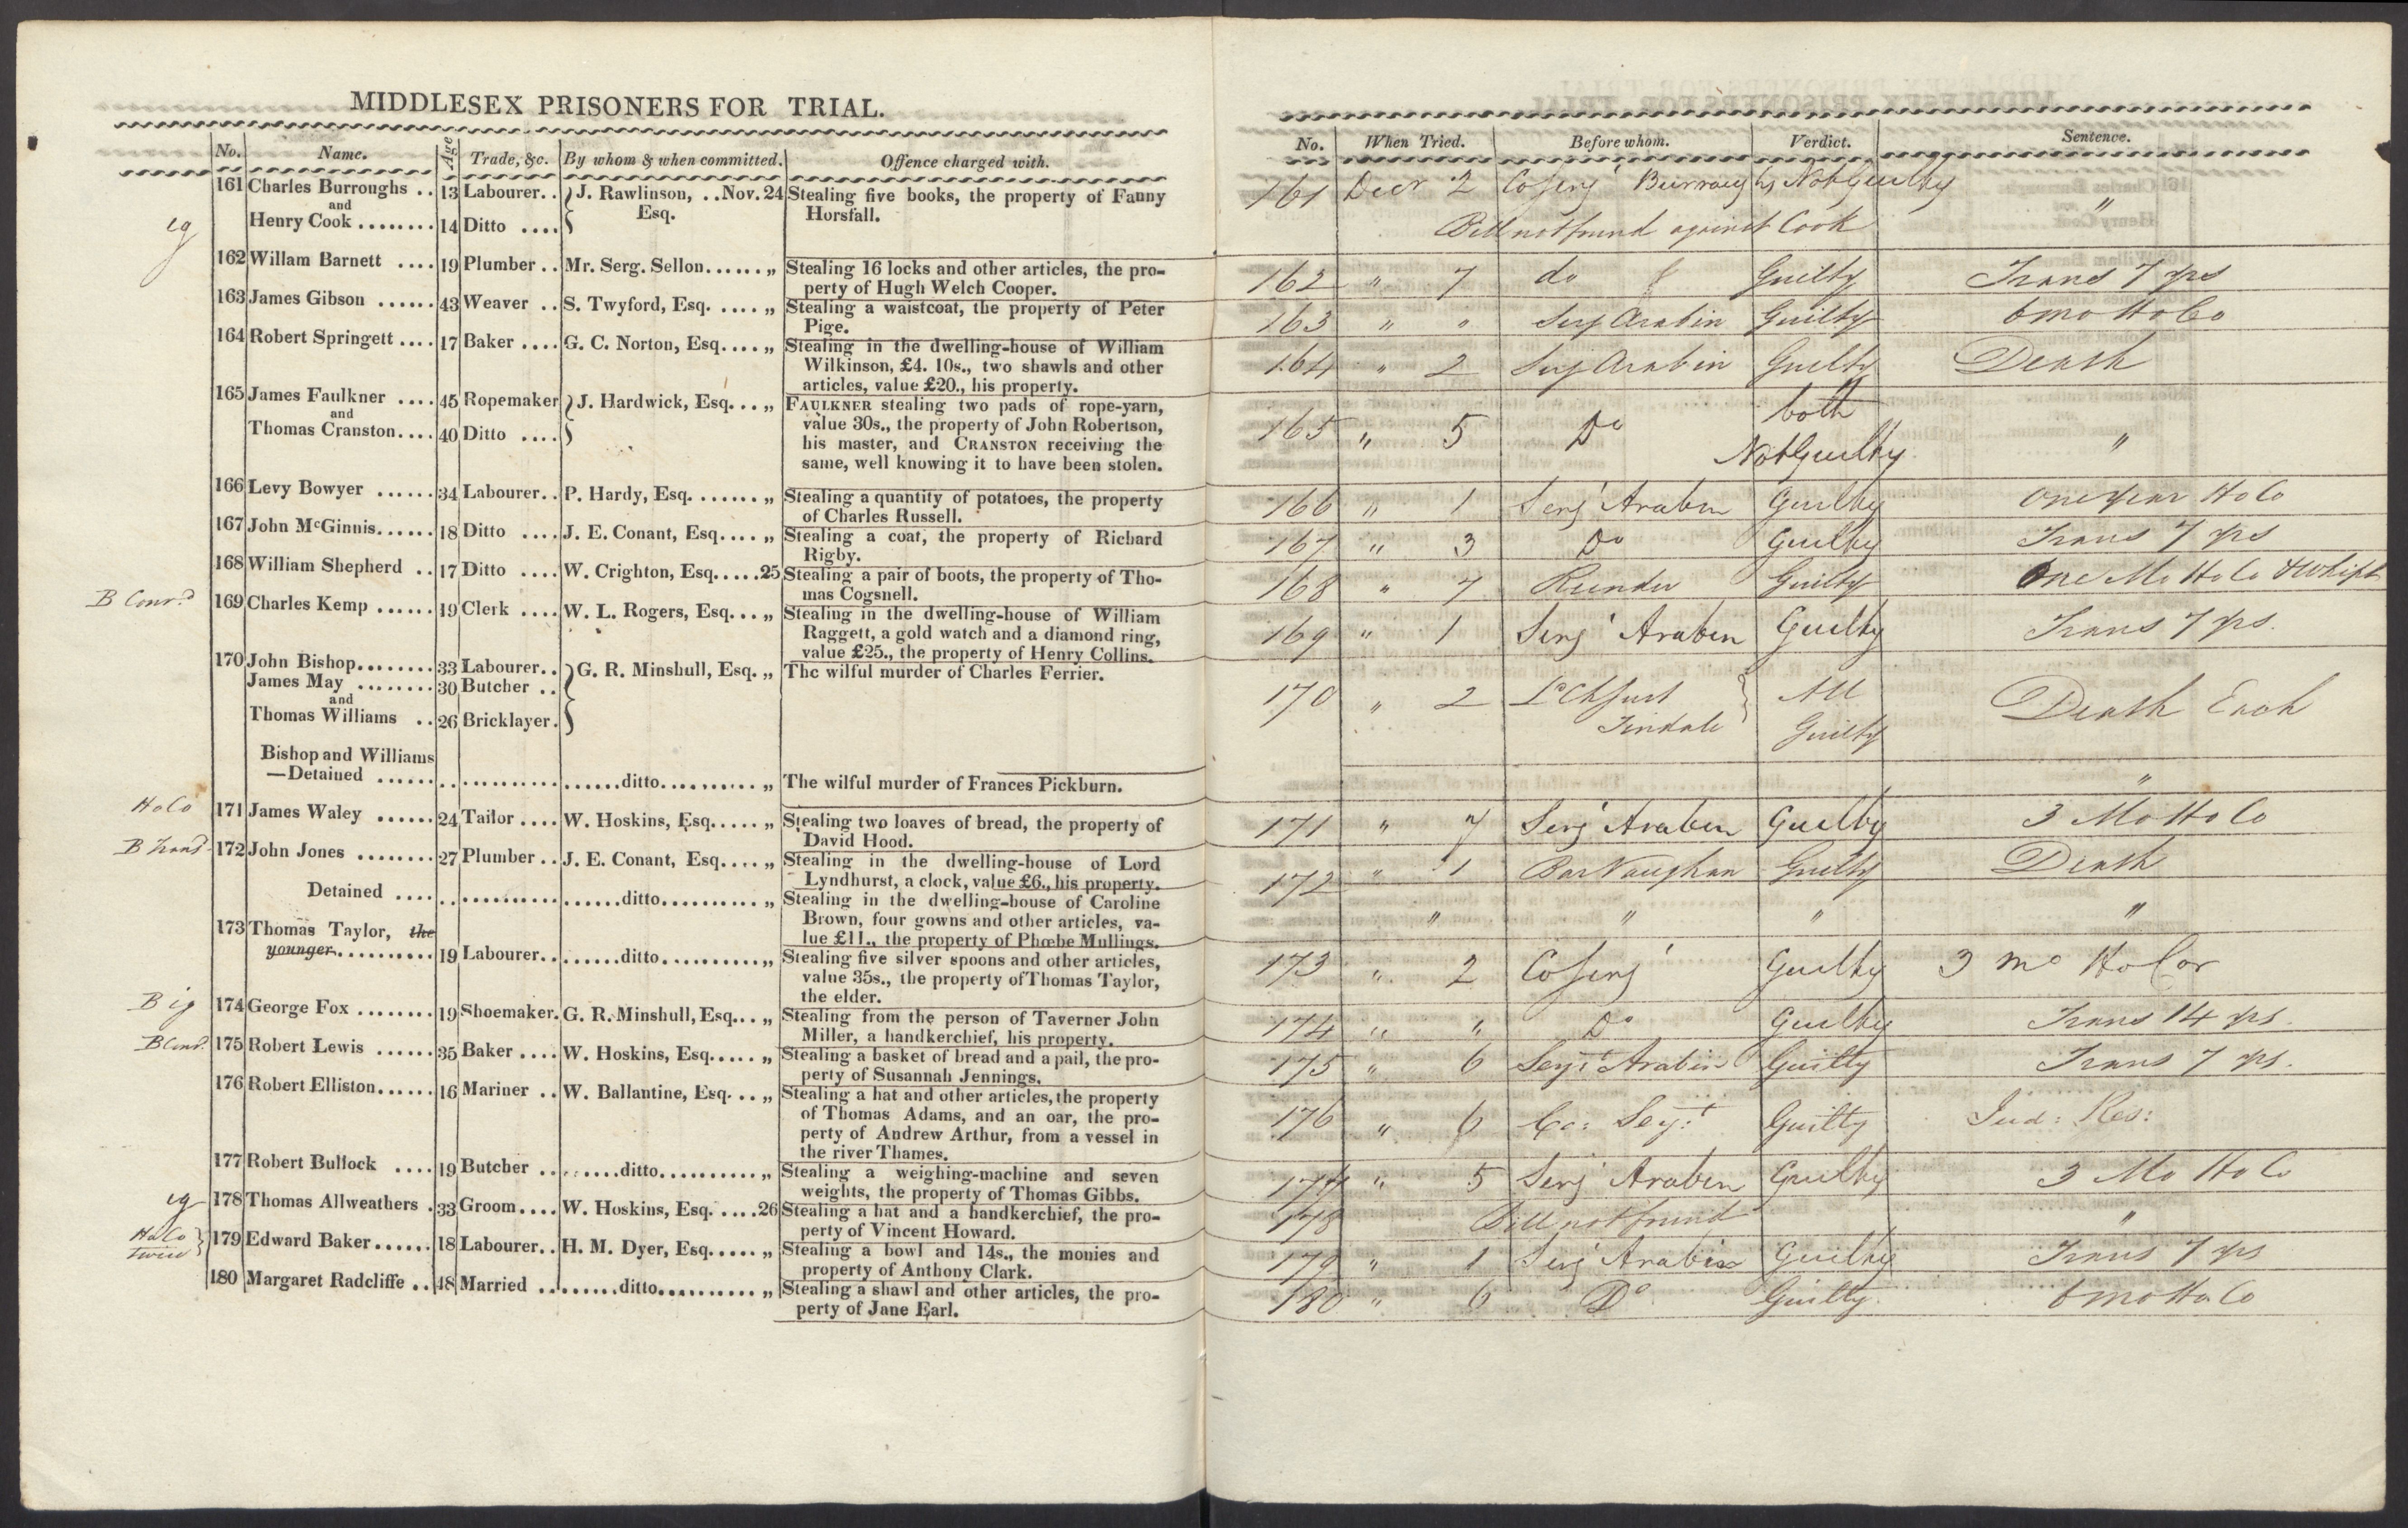 MIDDLESEX PRISONERS FOR TRIAL.
No. Name. Age Trade, &c. By whom & when committed. Offence charged with.
161 Charles Burroughs .. 13 Labourer.. J. Rawlinson, ..Nov. 24 Stealing five books, the property of Fanny
and Esq. Horsfall.
ig Henry Cook ........ 14 Ditto ....
162 Willam Barnett .... 19 Plumber .. Mr. Serg. Sellon...... „ Stealing 16 locks and other articles, the pro-
perty of Hugh Welch Cooper.
163 James Gibson ...... 43 Weaver .. S. Twyford, Esq. .... „ Stealing a waistcoat, the property of Peter
Pige.
164 Robert Springett .... 17 Baker .... G. C. Norton, Esq.... „ Stealing in the dwelling-house of William
Wilkinson, £4. 10s., two shawls and other
articles, value £20., his property.
165 James Faulkner .... 45 Ropemaker J. Hardwick, Esq... „ FAULKNER stealing two pads of rope-yarn,
and value 30s., the property of John Robertson,
Thomas Cranston.... 40 Ditto .... his master, and CRANSTON receiving the
same, well knowing it to have been stolen.
166 Levy Bowyer ...... 34 Labourer.. P. Hardy, Esq. ....... „ Stealing a quantity of potatoes, the property
of Charles Russell.
167 John McGinnis...... 18 Ditto .... J. E. Conant, Esq.... „ Stealing a coat, the property of Richard
Rigby.
168 William Shepherd .. 17 Ditto .... W. Crighton, Esq.....25 Stealing a pair of boots, the property of Tho-
mas Cogsnell.
B Conv.d 169 Charles Kemp ...... 19 Clerk .... W. L. Rogers, Esq... „ Stealing in the dwelling-house of William
Raggett, a gold watch and a diamond ring,
value £25., the property of Henry Collins.
170 John Bishop........ 33 Labourer.. G. R. Minshull, Esq. „ The wilful murder of Charles Ferrier.
James May ........ 30 Butcher ..
and
Thomas Williams .. 26 Bricklayer.
Bishop and Williams
—Detained ...... .. .......... ......ditto.......... „ The wilful murder of Frances Pickburn.
HoCo 171 James Waley ...... 24 Tailor .... W. Hoskins, Esq..... „ Stealing two loaves of bread, the property of
David Hood.
B Trans 172 John Jones ........ 27 Plumber .. J. E. Conant, Esq.... „ Stealing in the dwelling-house of Lord
Lyndhurst, a clock, value £6., his property.
Detained .... .. .......... ......ditto.......... „ Stealing in the dwelling-house of Caroline
Brown, four gowns and other articles, va-
lue £11., the property of Phœbe Mullings.
173 Thomas Taylor, the
younger.......... 19 Labourer.. ......ditto.......... „ Stealing five silver spoons and other articles,
value 35s., the property of Thomas Taylor,
the elder.
B ig 174 George Fox ........ 19 Shoemaker. G. R. Minshull, Esq... „ Stealing from the person of Taverner John
Miller, a handkerchief, his property.
B Cond. 175 Robert Lewis ...... 35 Baker .... W. Hoskins, Esq..... „ Stealing a basket of bread and a pail, the pro-
perty of Susannah Jennings.
176 Robert Elliston...... 16 Mariner .. W. Ballantine, Esq. .. „ Stealing a hat and other articles, the property
of Thomas Adams, and an oar, the pro-
perty of Andrew Arthur, from a vessel in
the river Thames.
177 Robert Bullock .... 19 Butcher .. ......ditto.......... „ Stealing a weighing-machine and seven
weights, the property of Thomas Gibbs.
ig 178 Thomas Allweathers . 33 Groom.... W. Hoskins, Esq. ....26 Stealing a hat and a handkerchief, the pro-
perty of Vincent Howard.
HoCo twice 179 Edward Baker...... 18 Labourer.. H. M. Dyer, Esq..... „ Stealing a bowl and 14s., the monies and
property of Anthony Clark.
180 Margaret Radcliffe .. 48 Married .. ......ditto.......... „ Stealing a shawl and other articles, the pro-
perty of Jane Earl.
No. When Tried. Before whom. Verdict. Sentence.
161 Decr 2 CoSerj Burroughs NotGuilty "
Bill not found against Cook
162 " 7 do Guilty Trans 7 yrs
163 " " Serj Arabin Guilty 6 mo HoCo
164 " 2 Serj Arabin Guilty Death
165 " 5 Do both
Not Guilty "
166 " 1 Serj Arabin Guilty one year HoCo
167 " 3 Do Guilty Trans 7 yrs
168 " 7 Guilty One Mo HoCo & Whipt
169 " 1 Serj Arabin Guilty Trans 7 yrs.
170 " 2 Ld Ch Just All Death Each
Tindale Guilty
"
171 " 7 Serj Arabin Guilty 3 Mo HoCo
172 " 1 Bar Vaughan Guilty Death
" " " "
173 " 2 CoSerj Guilty 3 mo HoCor
174 " " Do Guilty Trans 14 yrs.
175 " 6 Serjt Arabin Guilty Trans 7 yrs.
176 " 6 Co: Serjt Guilty Jud: Res:
177 " 5 Serj Arabin Guilty 3 Mo HoCo
178 Bill not found "
179 " 1 Serj Arabin Guilty Trans 7 yrs
180 " 6 Do Guilty 6 mo HoCo